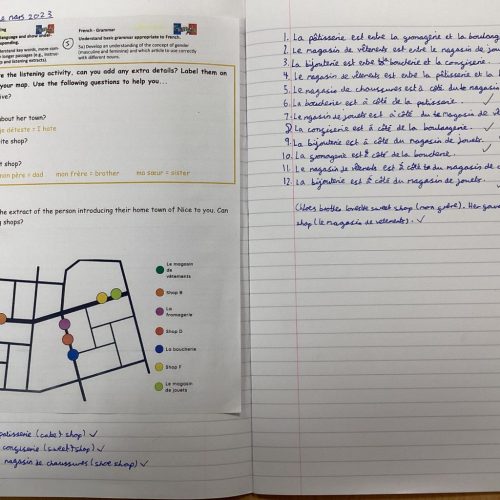 mars 2023
French - Grammar
language and show under-
sponding.
Understand basic grammar appropriate to French.
5
5a) Develop an understanding of the concept of gender
(masculine and feminine) and which article to use correctly
with different nouns.
the listening activity, can you add any extra details? Label them on
your map. Use the following questions to help you...
ive?
about her town?
je déteste = I hate
ite shop?
t shop?
mon père = dad mon frère = brother ma sœur = sister
the extract of the person introducing their home town of Nice to you. Can
g shops?
Le magasin
de
vêtements
Shop B
La
fromagerie
Shop D
La boucherie
Shop F
Le magasin
de jouets
patisserie (cake shop) ✓
(sweet shop) ✓
magasin de chaussures (shoe shop) ✓
1. La pâtisserie est entre la fromagerie et la
2. Le magasin de vêtements est entre le magasin de
3. La bijouterie est entre la boucherie et la
4. Le magasin de est entre la pâtisserie et la
5. Le magasin de chaussures est à côté de magasin
6. La boucherie est à côté de la patisserie. ✓
7. Le magasin de jouets est à côté du magasin de
8. La est à côté de la boulangerie. ✓
9. La bijouterie est à côté du magasin de jouets. ✓
10. La fromagerie est à côté de la boucherie.
11. Le magasin de est à côté du magasin de
12. La bijouterie est à côté du magasin de jouets.
brother sweet shop (mon frère). Her
shop (le magasin de vetements). ✓